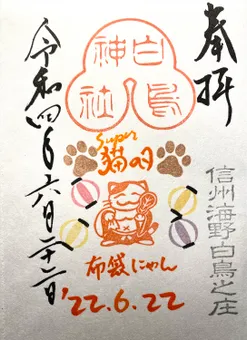 奉拝
白鳥神社
super
猫の日
信州海野白鳥之庄
布袋にゃん
令和四年六月二十二日
'22.6.22